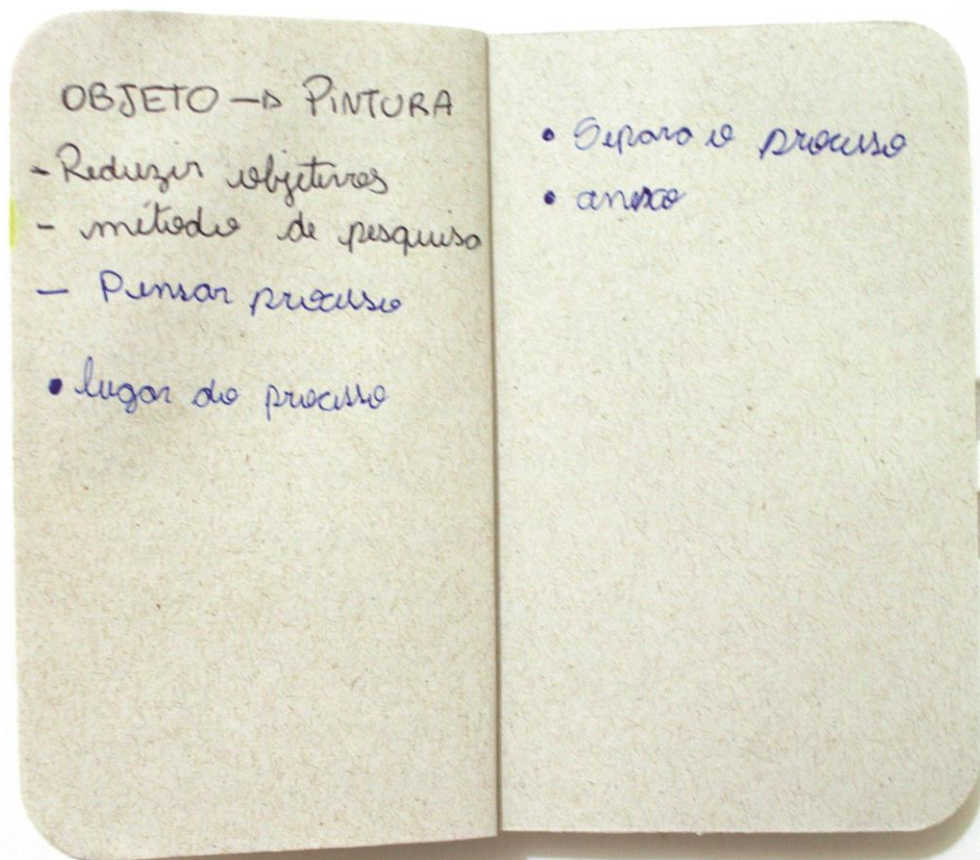 OBJETO → PINTURA
- Reduzir objetivos
- método de pesquisa
- Pensar processo
• lugar do processo
• Separa o processo
• anexo